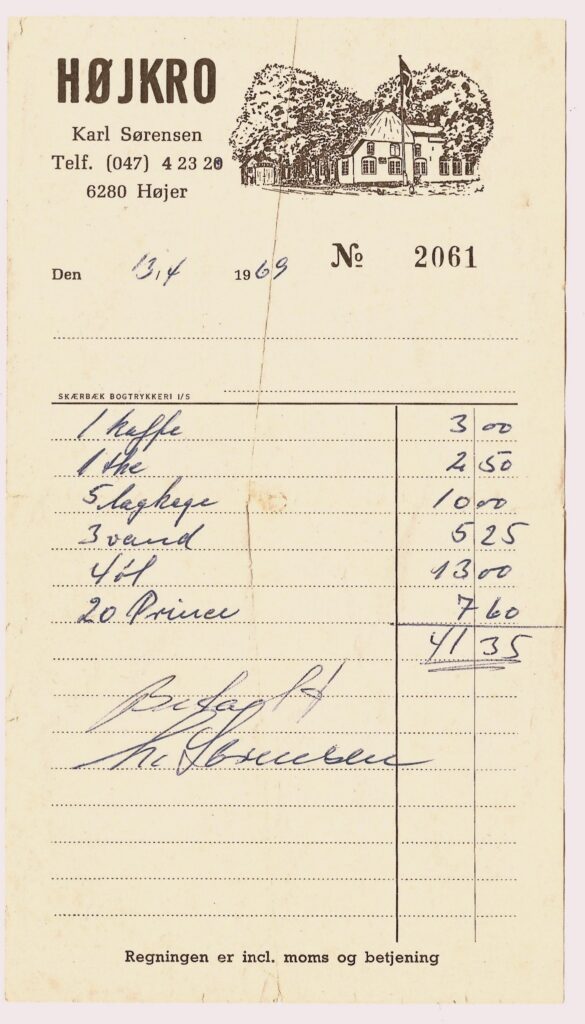 HØJKRO
Karl Sørensen
Telf. (047) 4 23 20
6280 Højer
Den 13,4 1969
№ 2061
SKÆRBÆK BOGTRYKKERI I/S
1 kaffe 3 00
1 the 2 50
5 lagkage 10 00
3 vand 5 25
4 øl 13 00
20 Prince 7 60
41 35
Betalt
K. Sørensen
Regningen er incl. moms og betjening